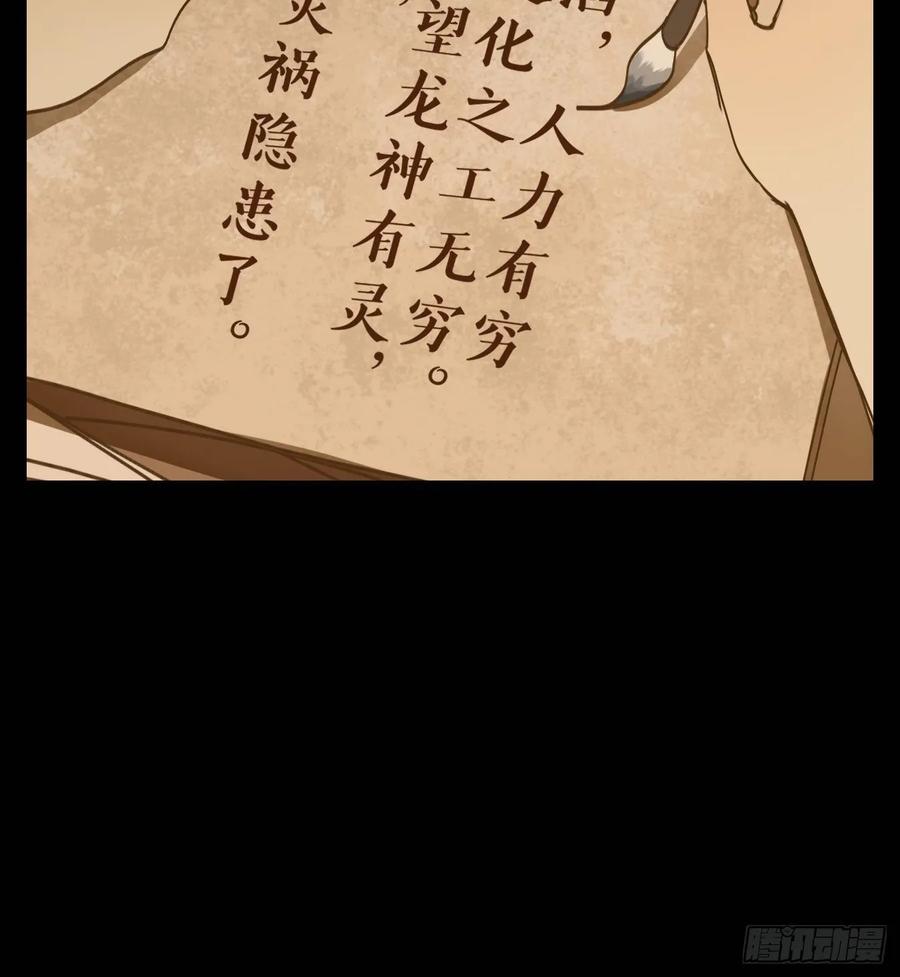 ，人力有穷
化之工无穷。
望龙神有灵，
灾祸隐患了。
腾讯动漫